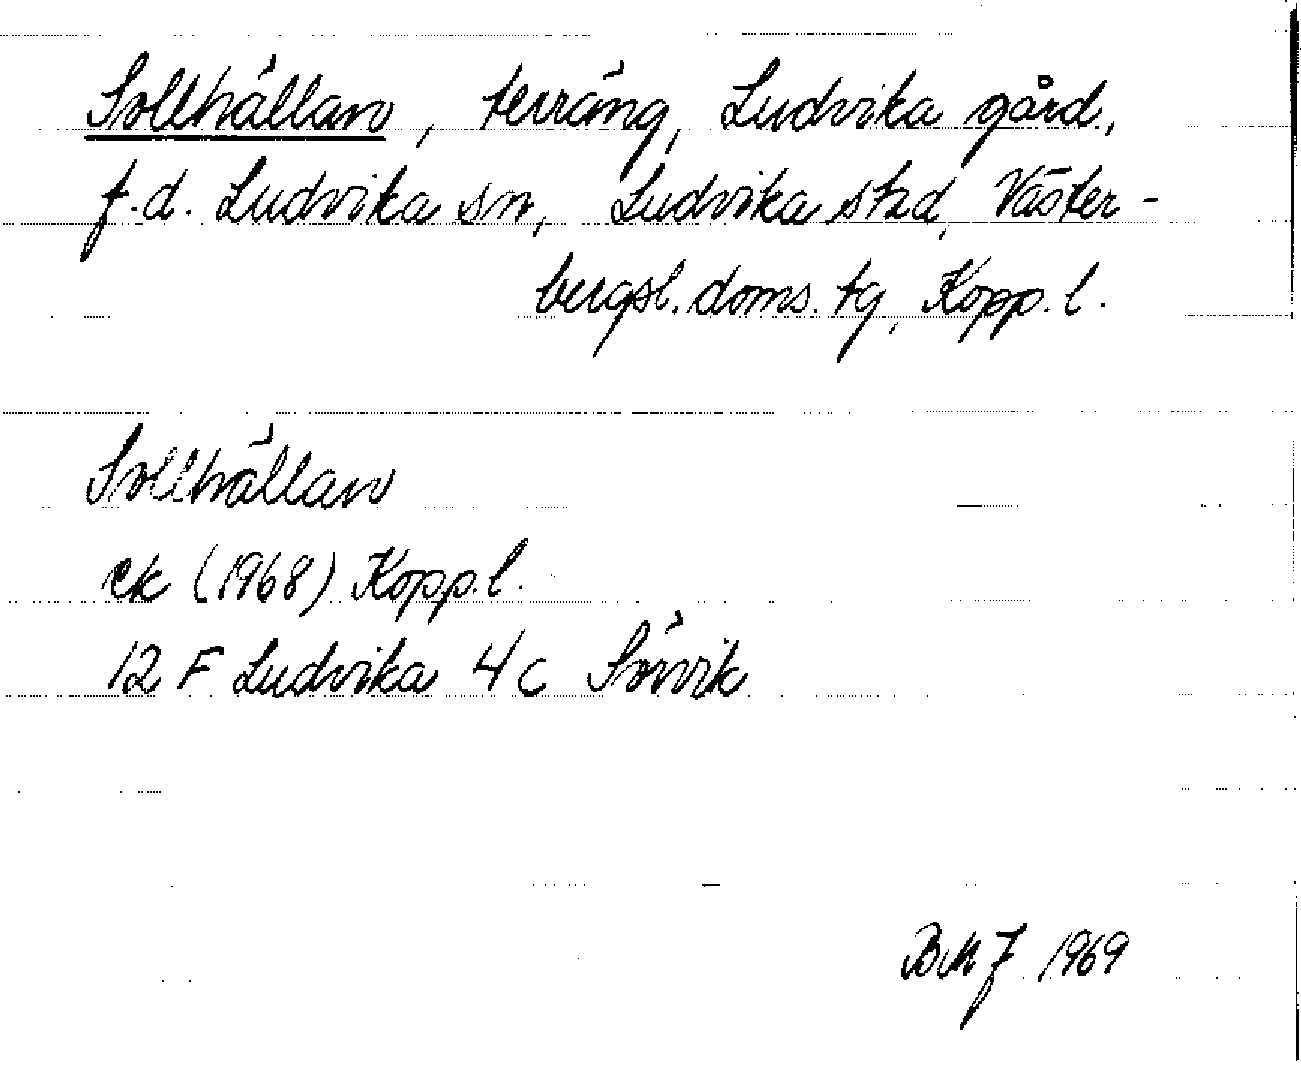 Sollhällan, terräng, Ludvika gård,
f.d. Ludvika sn, Ludvika stad, Väster-
bergsl. doms. tg, Kopp. l.
Sollhällan
ek (1968) Kopp. l.
12 F Ludvika 4 c Sörvik
1969